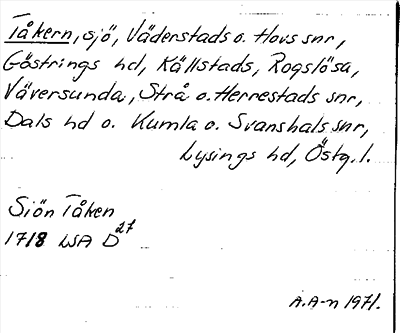 Tåkern, sjö, Väderstads o. Hovs snr,
Göstrings hd, Källstads, Rogslösa,
Väversunda, Strå o. Herrestads snr,
Dals hd o. Kumla o. Svanshals snr,
Lysings hd, Östg. l.
Siön Tåken
1718 LSA D27
A.A-n 1971.